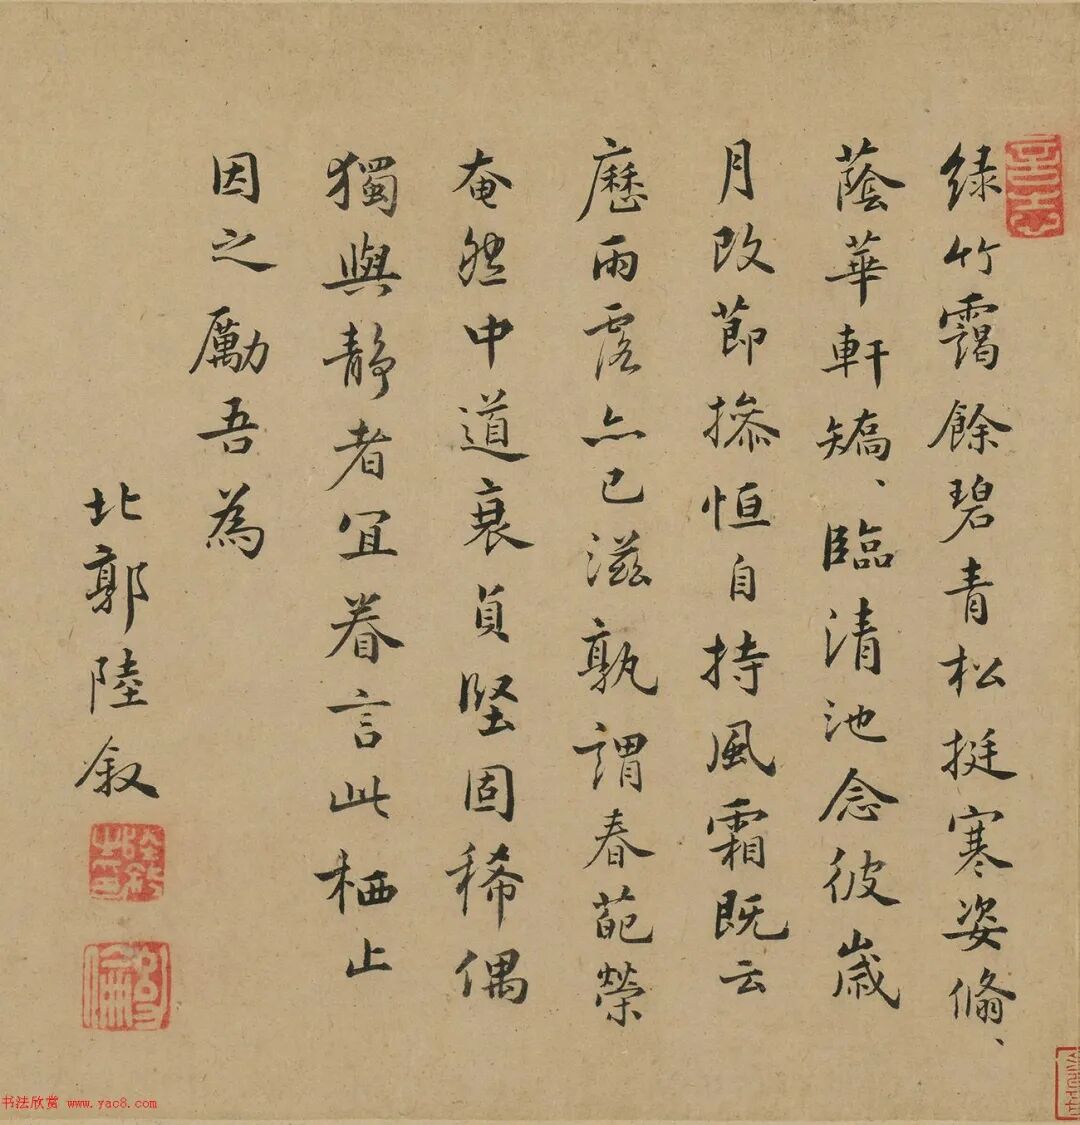 绿竹靄餘碧青松挺寒姿脩、
蔭華軒矯、臨清池念彼歲
月改莭摻恒自持風霜既云
歷雨露亦已滋孰謂春葩榮
奄然中道衰貞堅固稀偶
獨與靜者宜眷言此栖止
因之勵吾為
北郭陸叙
书法欣赏 www.yac8.com